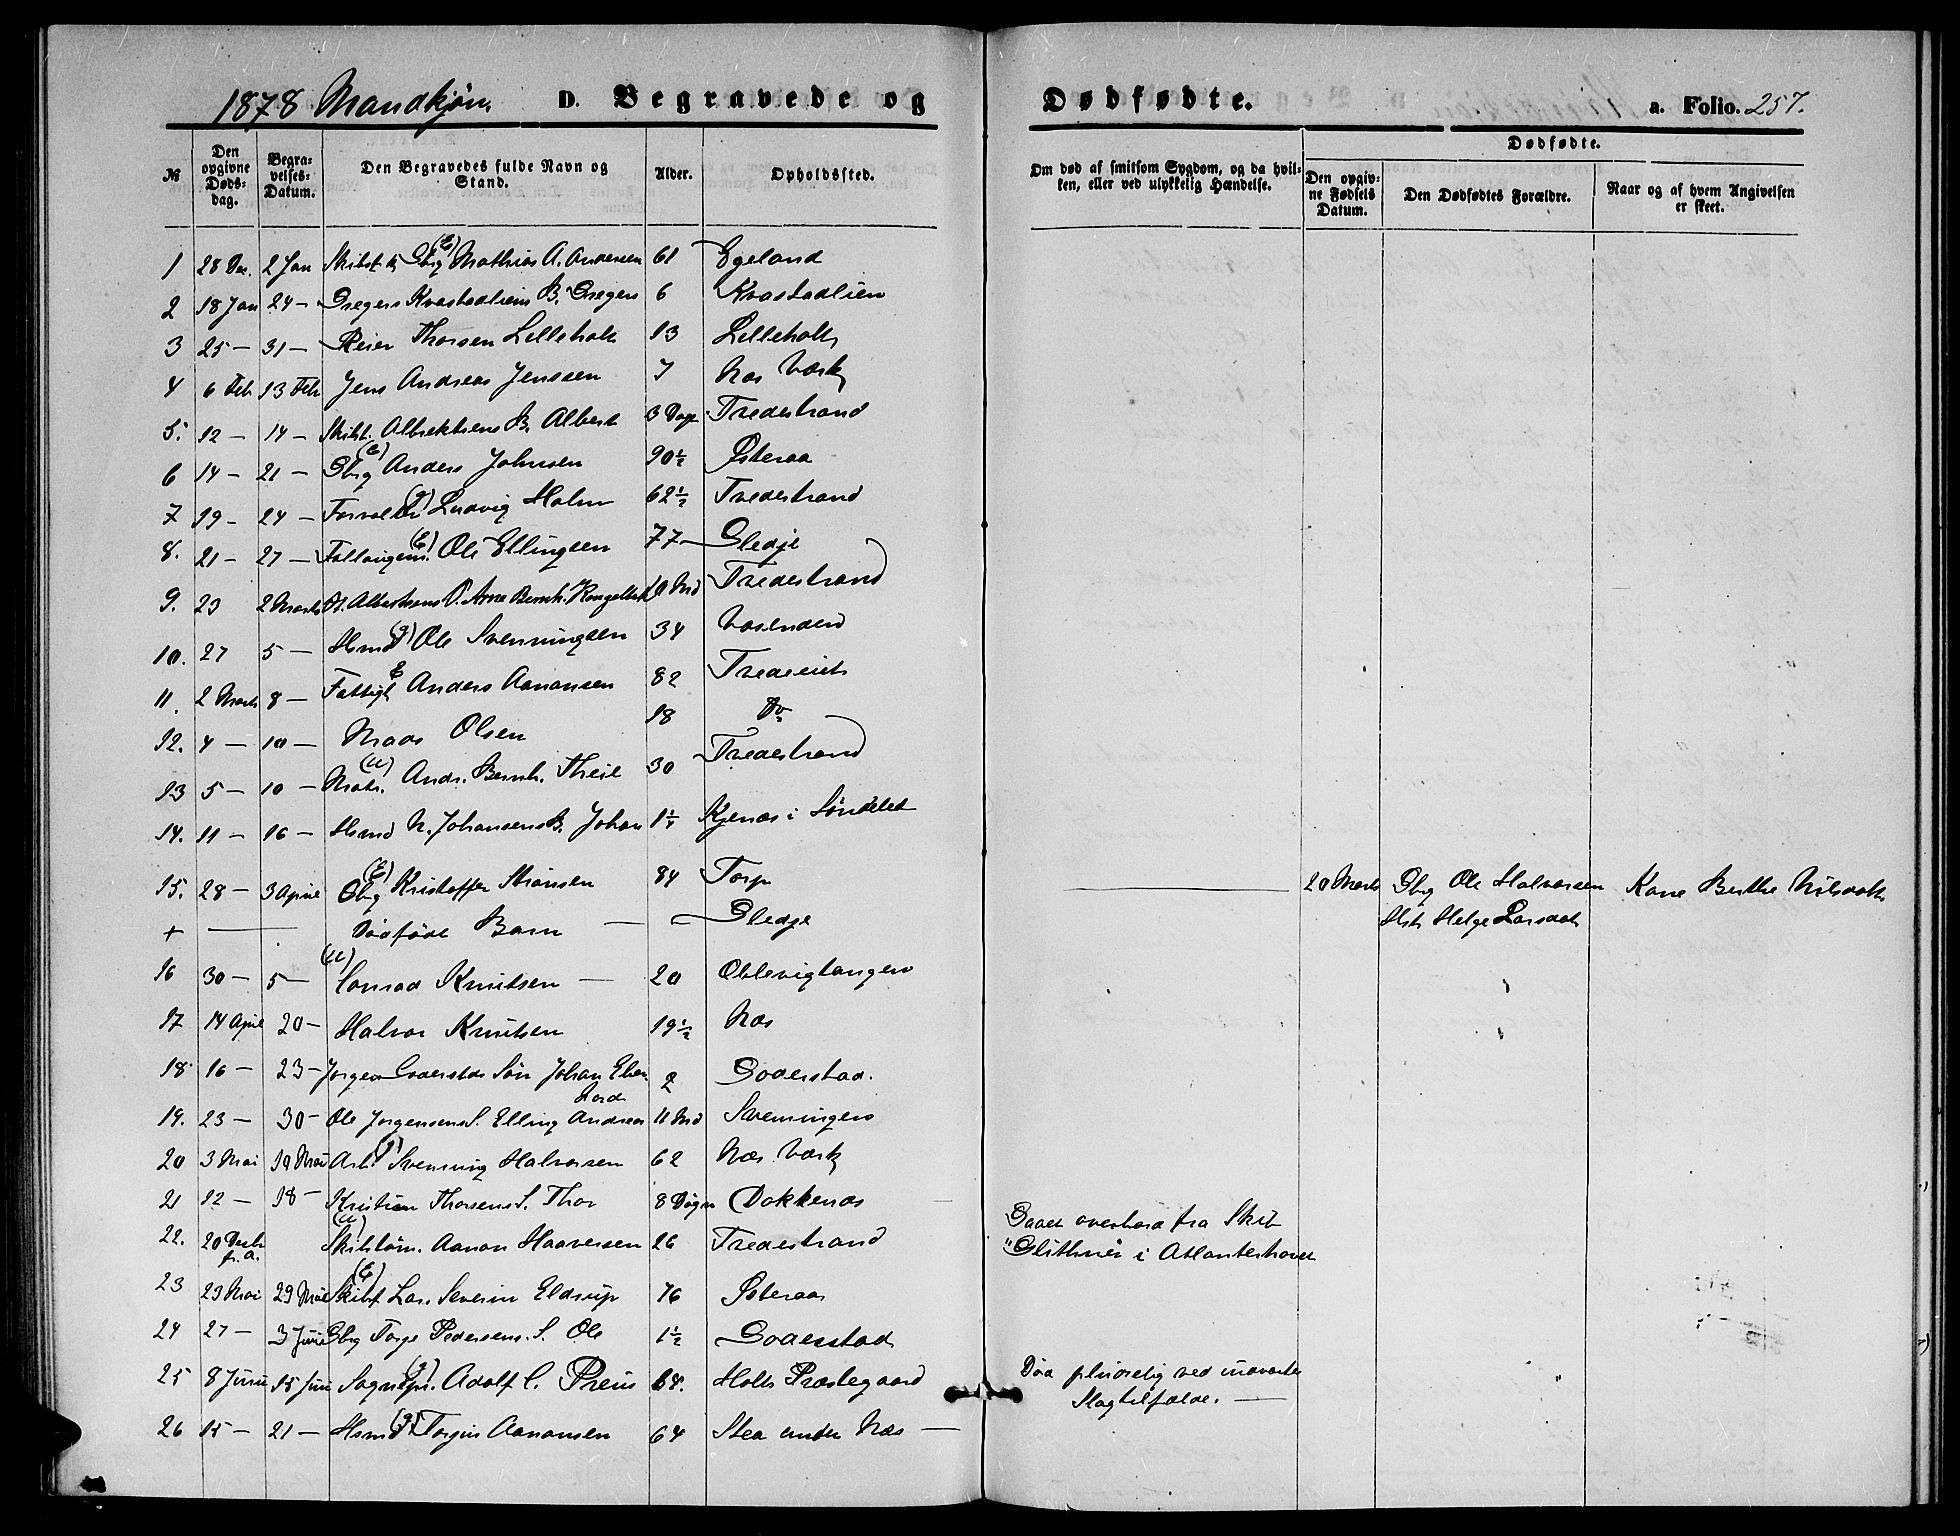 1878 Mandkjøn D. Begravede og Dødfødte. a. Folio. 257.
№ Den opgivne Døds-dag. Begra-velses-Datum. Den Begravedes fulde Navn og Stand. Alder. Opholdssted. Om død af smitsom Sygdom, og da hvil-ken, eller ved ulykkelig Hændelse. Dødfødte. Den opgiv-ne Fødsels Datum. Den Dødfødtes Forældre. Naar og af hvem Angivelsen er skeet.
1 28 Dec. 2 Jan Skibst. (E) Mathias A. Andersen 61 Egeland
2 18 Jan 24 — Gregers Kvastadliens B. Gregers 6 Kvastadlien
3 25 — 31 — Reier Thorsen Lilleholt 13 Lilleholt
4 6 Feb 13 Feb Jens Andreas Jenssen 7 Næs Værk
5. 12 — 14 — Skibst. Albrektsens B. Albert 3 Dage Tvedestrand
6 14 — 21 — Gbrg (E) Anders Johnsen 90½ Østeraa
7 19 — 24 — Forvalter (g) Ludvig Holm 62½ Tvedestrand
8. 21 — 27 — (E) Ole Ellingsen 77 Gledje
9. 23 2 Marts Albertsens Arne Bernh. 10 Md Tvedestrand
10. 27 5 — Hsmd (g) Ole Svenningsen 34 Vasenden
11. 2 Marts 8 — Fattigl E Anders Aanonsen 82 Tvedeeiet
12. 4 — 10 — Mads Olsen 18 Do
13 5 — 10 — Matr. (u) Andr. Bernh. Theie 30 Tvedestrand
14. 11 — 16 — Hsmd N. Johansens B. Johan 1¼ Kjenæs i Søndeled
15. 28 — 3 April Gbrg (E) Kristoffer 84 Torp — 20 Marts Gbrg Ole Halvorsen Kone Berthe Nilsdatr
+ — Dødføde Barn — — Gledje Hst Helge Larsdatr
16 30 — 5 — (u) Conrad Knutsen — 20 Oblevigtangen
17 14 April 20 — Halvor Knutsen 19½ Næs
18 16 — 23 — Jørgen Goderstds Søn Johan Eber
hard 2 Goderstad.
19. 23 — 30 — Ole Jørgensens S. Elling Andreas 11 Md Svenningen
20 3 Mai 19 Mai Arb (g) Svenning Halvorsen 62 Næs Værk
21 12 — 18 — Kristian Thorsens S. Thor 8 Døgn Dokkenæs
22. 20 Decb f. a. Skibstøm. (u) Aanon Haaversen 26 Tvedestrand Gaaet overbord fra Skib
"Glithner i Atlanterhavet
23 23 Mai 29 Mai Skibsf (E) Lars Severin Eldrup 76 Østeraa
24 27 — 3 Juni Gbrg Torge Pedersens S. Ole 1½ Goderstad
25 8 Juni 15 Juni Sognepr. (g) Adolf C. Preus 64. Holts Præstegaard Død pludselig ved indvortes
Slagtilfælde. —
26 15 — 21 — Hsmd (g) Torgius Aanonsen 64 Stea under Næs —